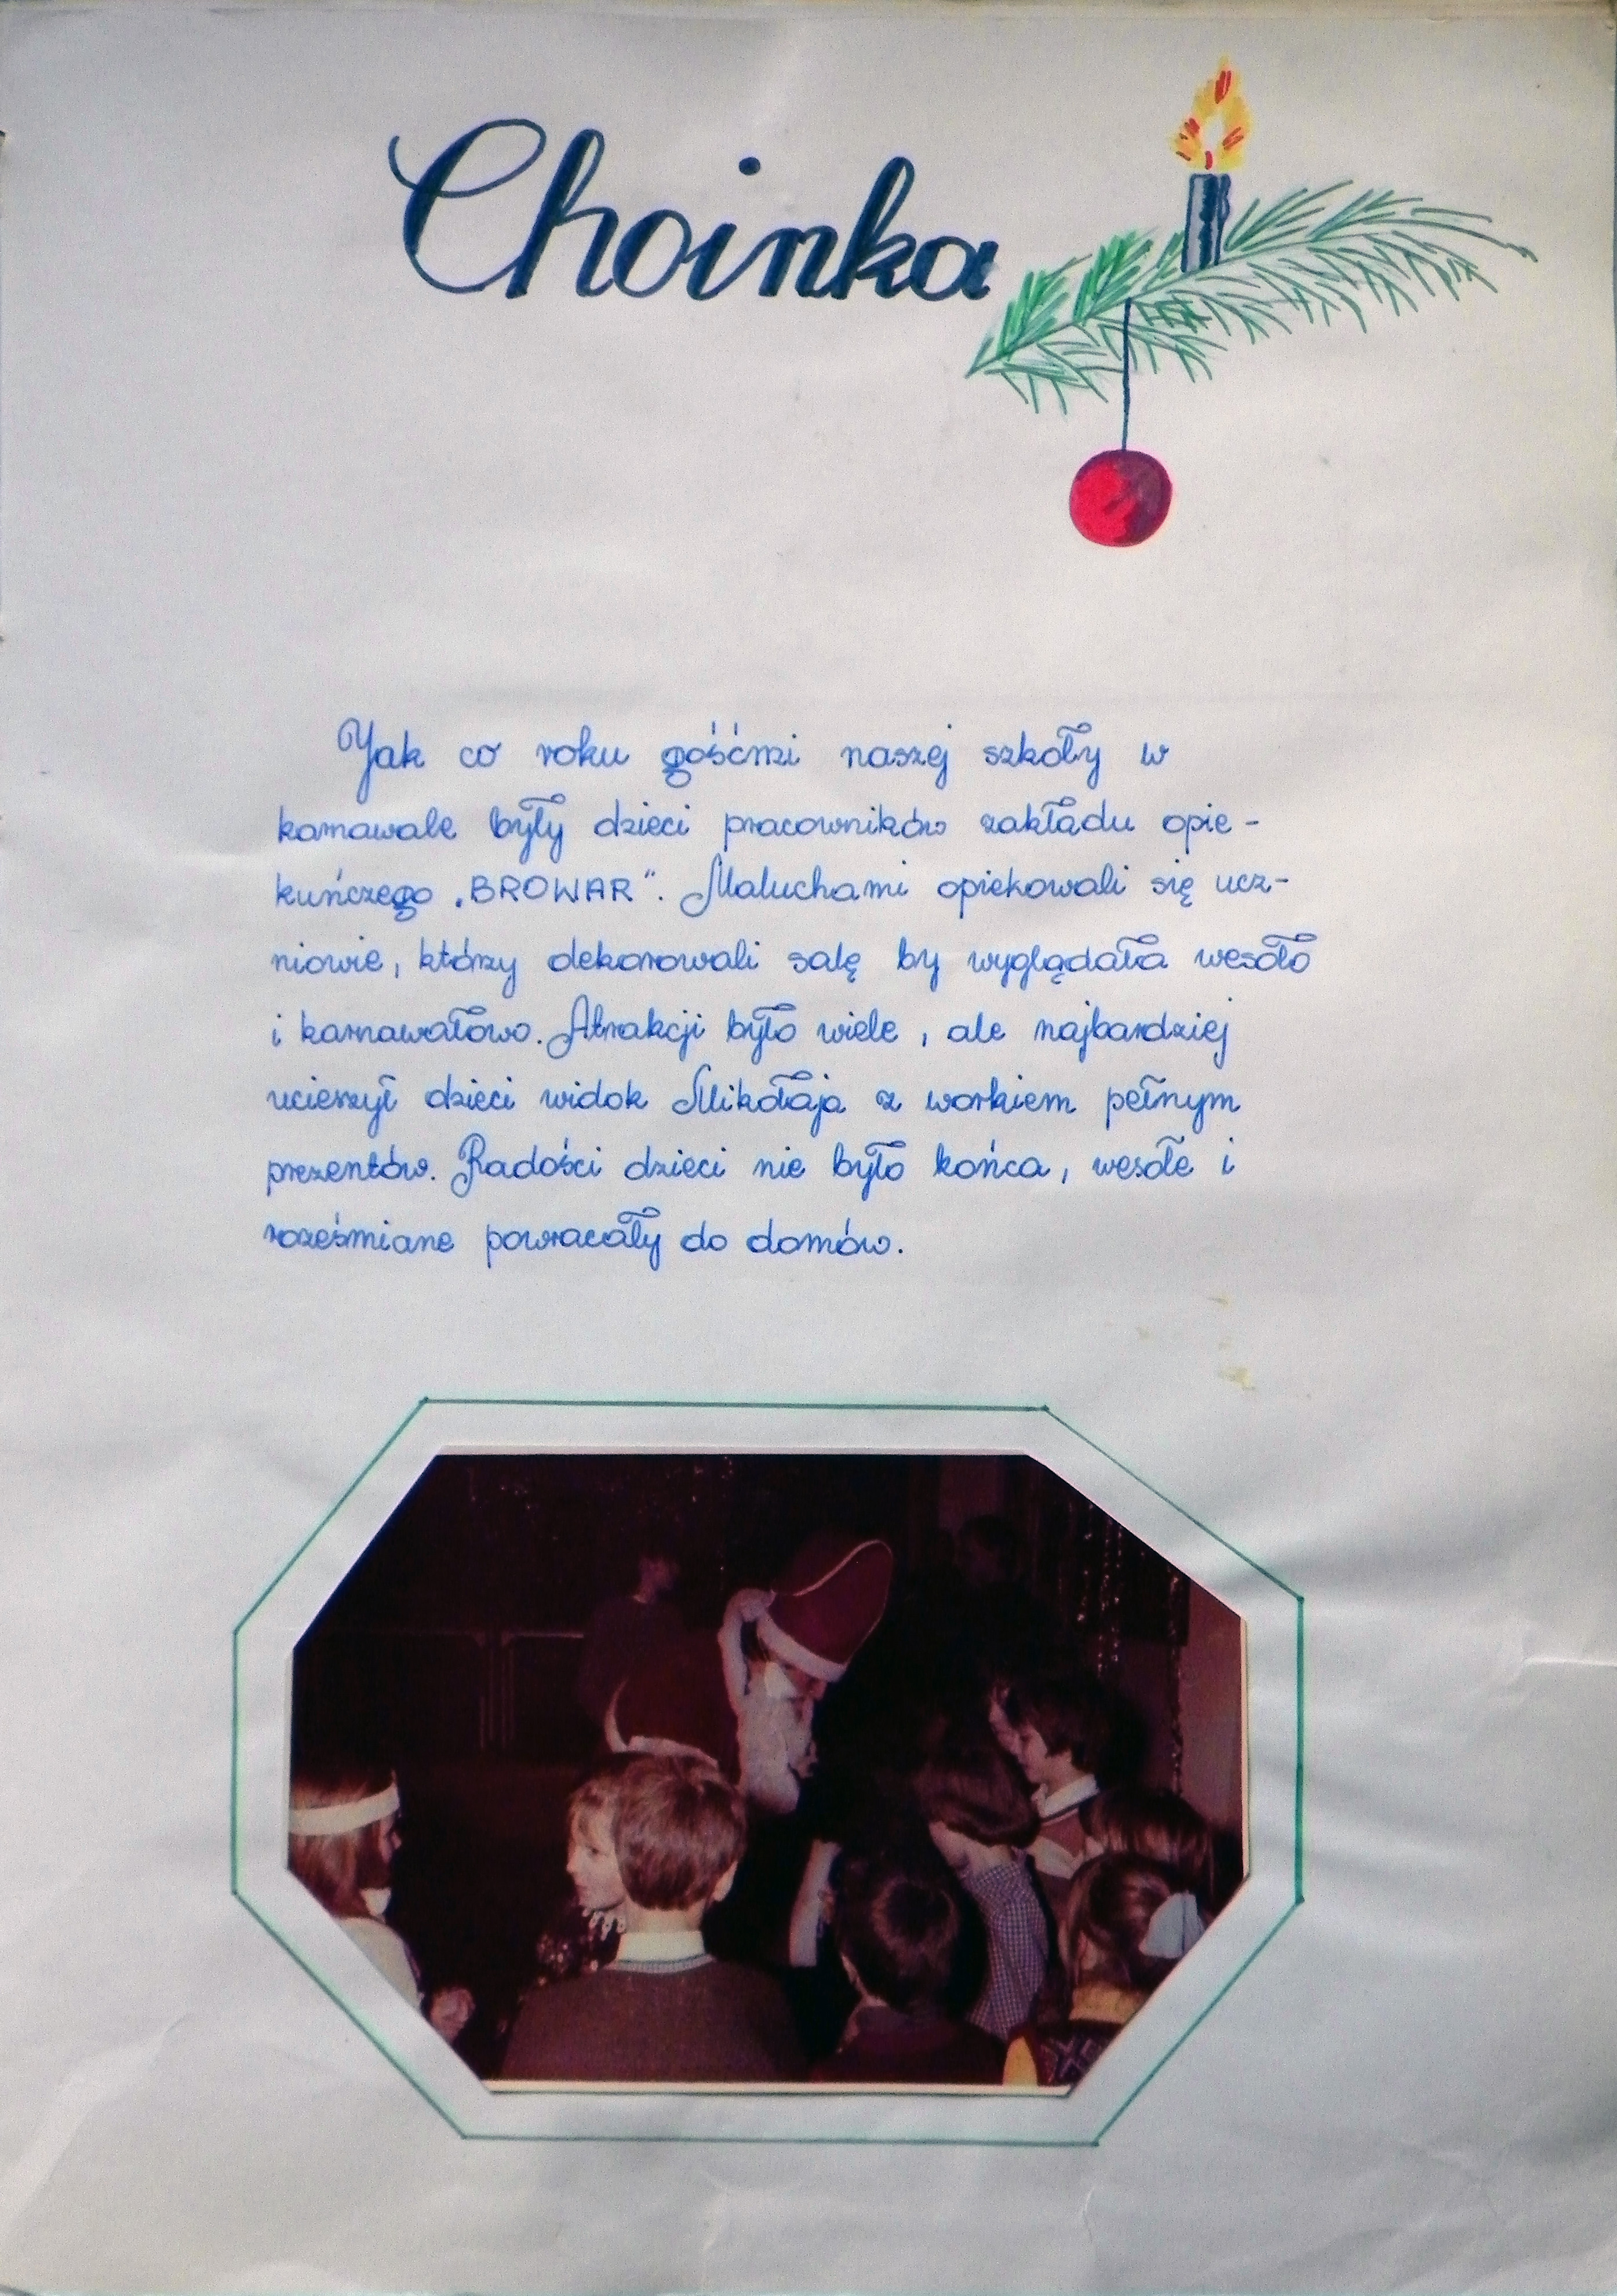 Choinka
Jak co roku gośćmi naszej szkoły w
karnawale były dzieci pracowników zakładu opie-
kuńczego „BROWAR”. Maluchami opiekowali się ucz-
niowie, którzy dekorowali salę by wyglądała wesoło
i karnawałowo. Atrakcji było wiele, ale najbardziej
ucieszył dzieci widok Mikołaja z workiem pełnym
prezentów. Radości dzieci nie było końca, wesołe i
roześmiane powracały do domów.